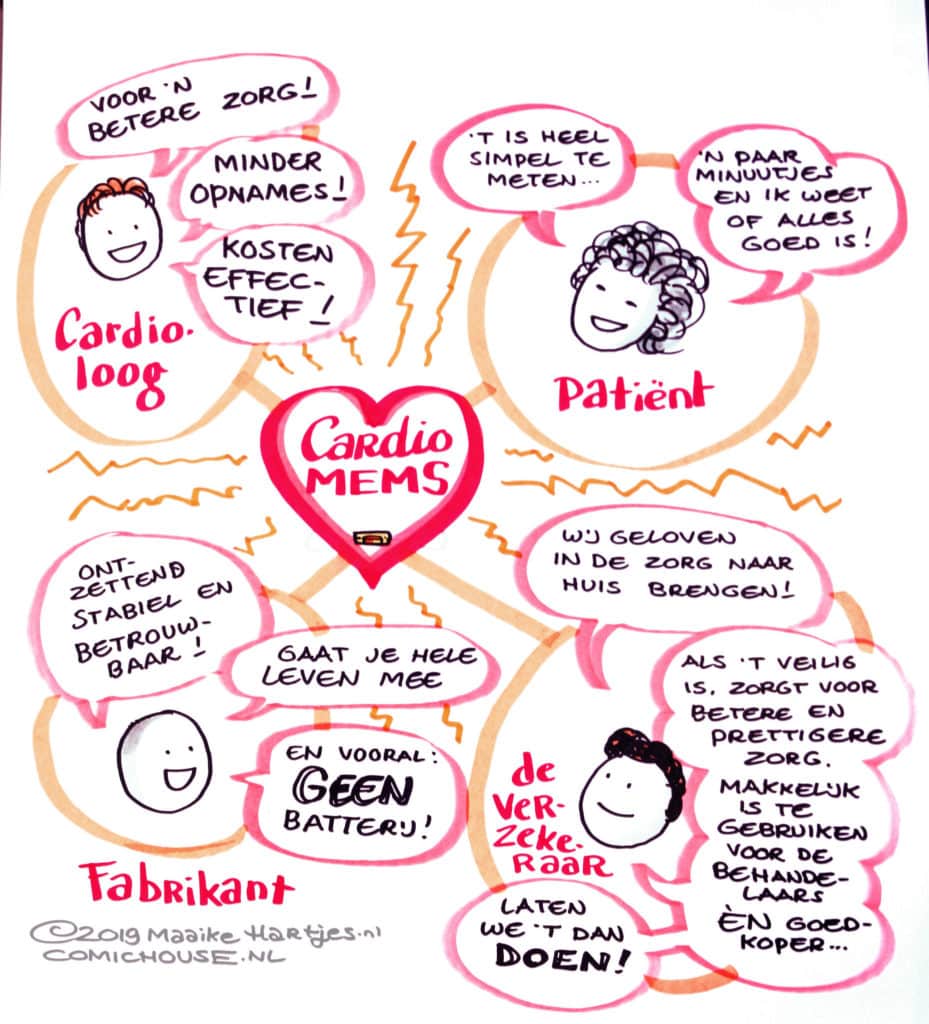 VOOR 'N
BETERE ZORG!
MINDER
OPNAMES!
KOSTEN
EFFEC-
TIEF!
Cardio.
loog
'T IS HEEL
SIMPEL TE
METEN...
'N PAAR
MINUUTJES
EN IK WEET
OF ALLES
GOED IS!
Patiënt
Cardio
MEMS
ONT-
ZETTEND
STABIEL EN
BETROUW-
BAAR!
GAAT JE HELE
LEVEN MEE
EN VOORAL:
GEEN
BATTERIJ!
Fabrikant
WIJ GELOVEN
IN DE ZORG NAAR
HUIS BRENGEN!
ALS 'T VEILIG
IS, ZORGT VOOR
BETERE EN
PRETTIGERE
ZORG.
MAKKELIJK
IS TE
GEBRUIKEN
VOOR DE
BEHANDE-
LAARS
ÈN GOED-
KOPER...
de
VER-
ZEKE-
RAAR
LATEN
WE 'T DAN
DOEN!
©2019 Maaike Hartjes.nl
COMICHOUSE.NL